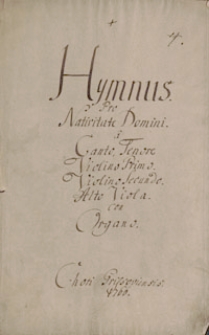 4.
Hymnus.
Pro
Nativitate Domini.
a
Canto, Tenore
Violino Primo.
Violino Secundo.
Alto Viola.
con
Organo.
Chori
1766.